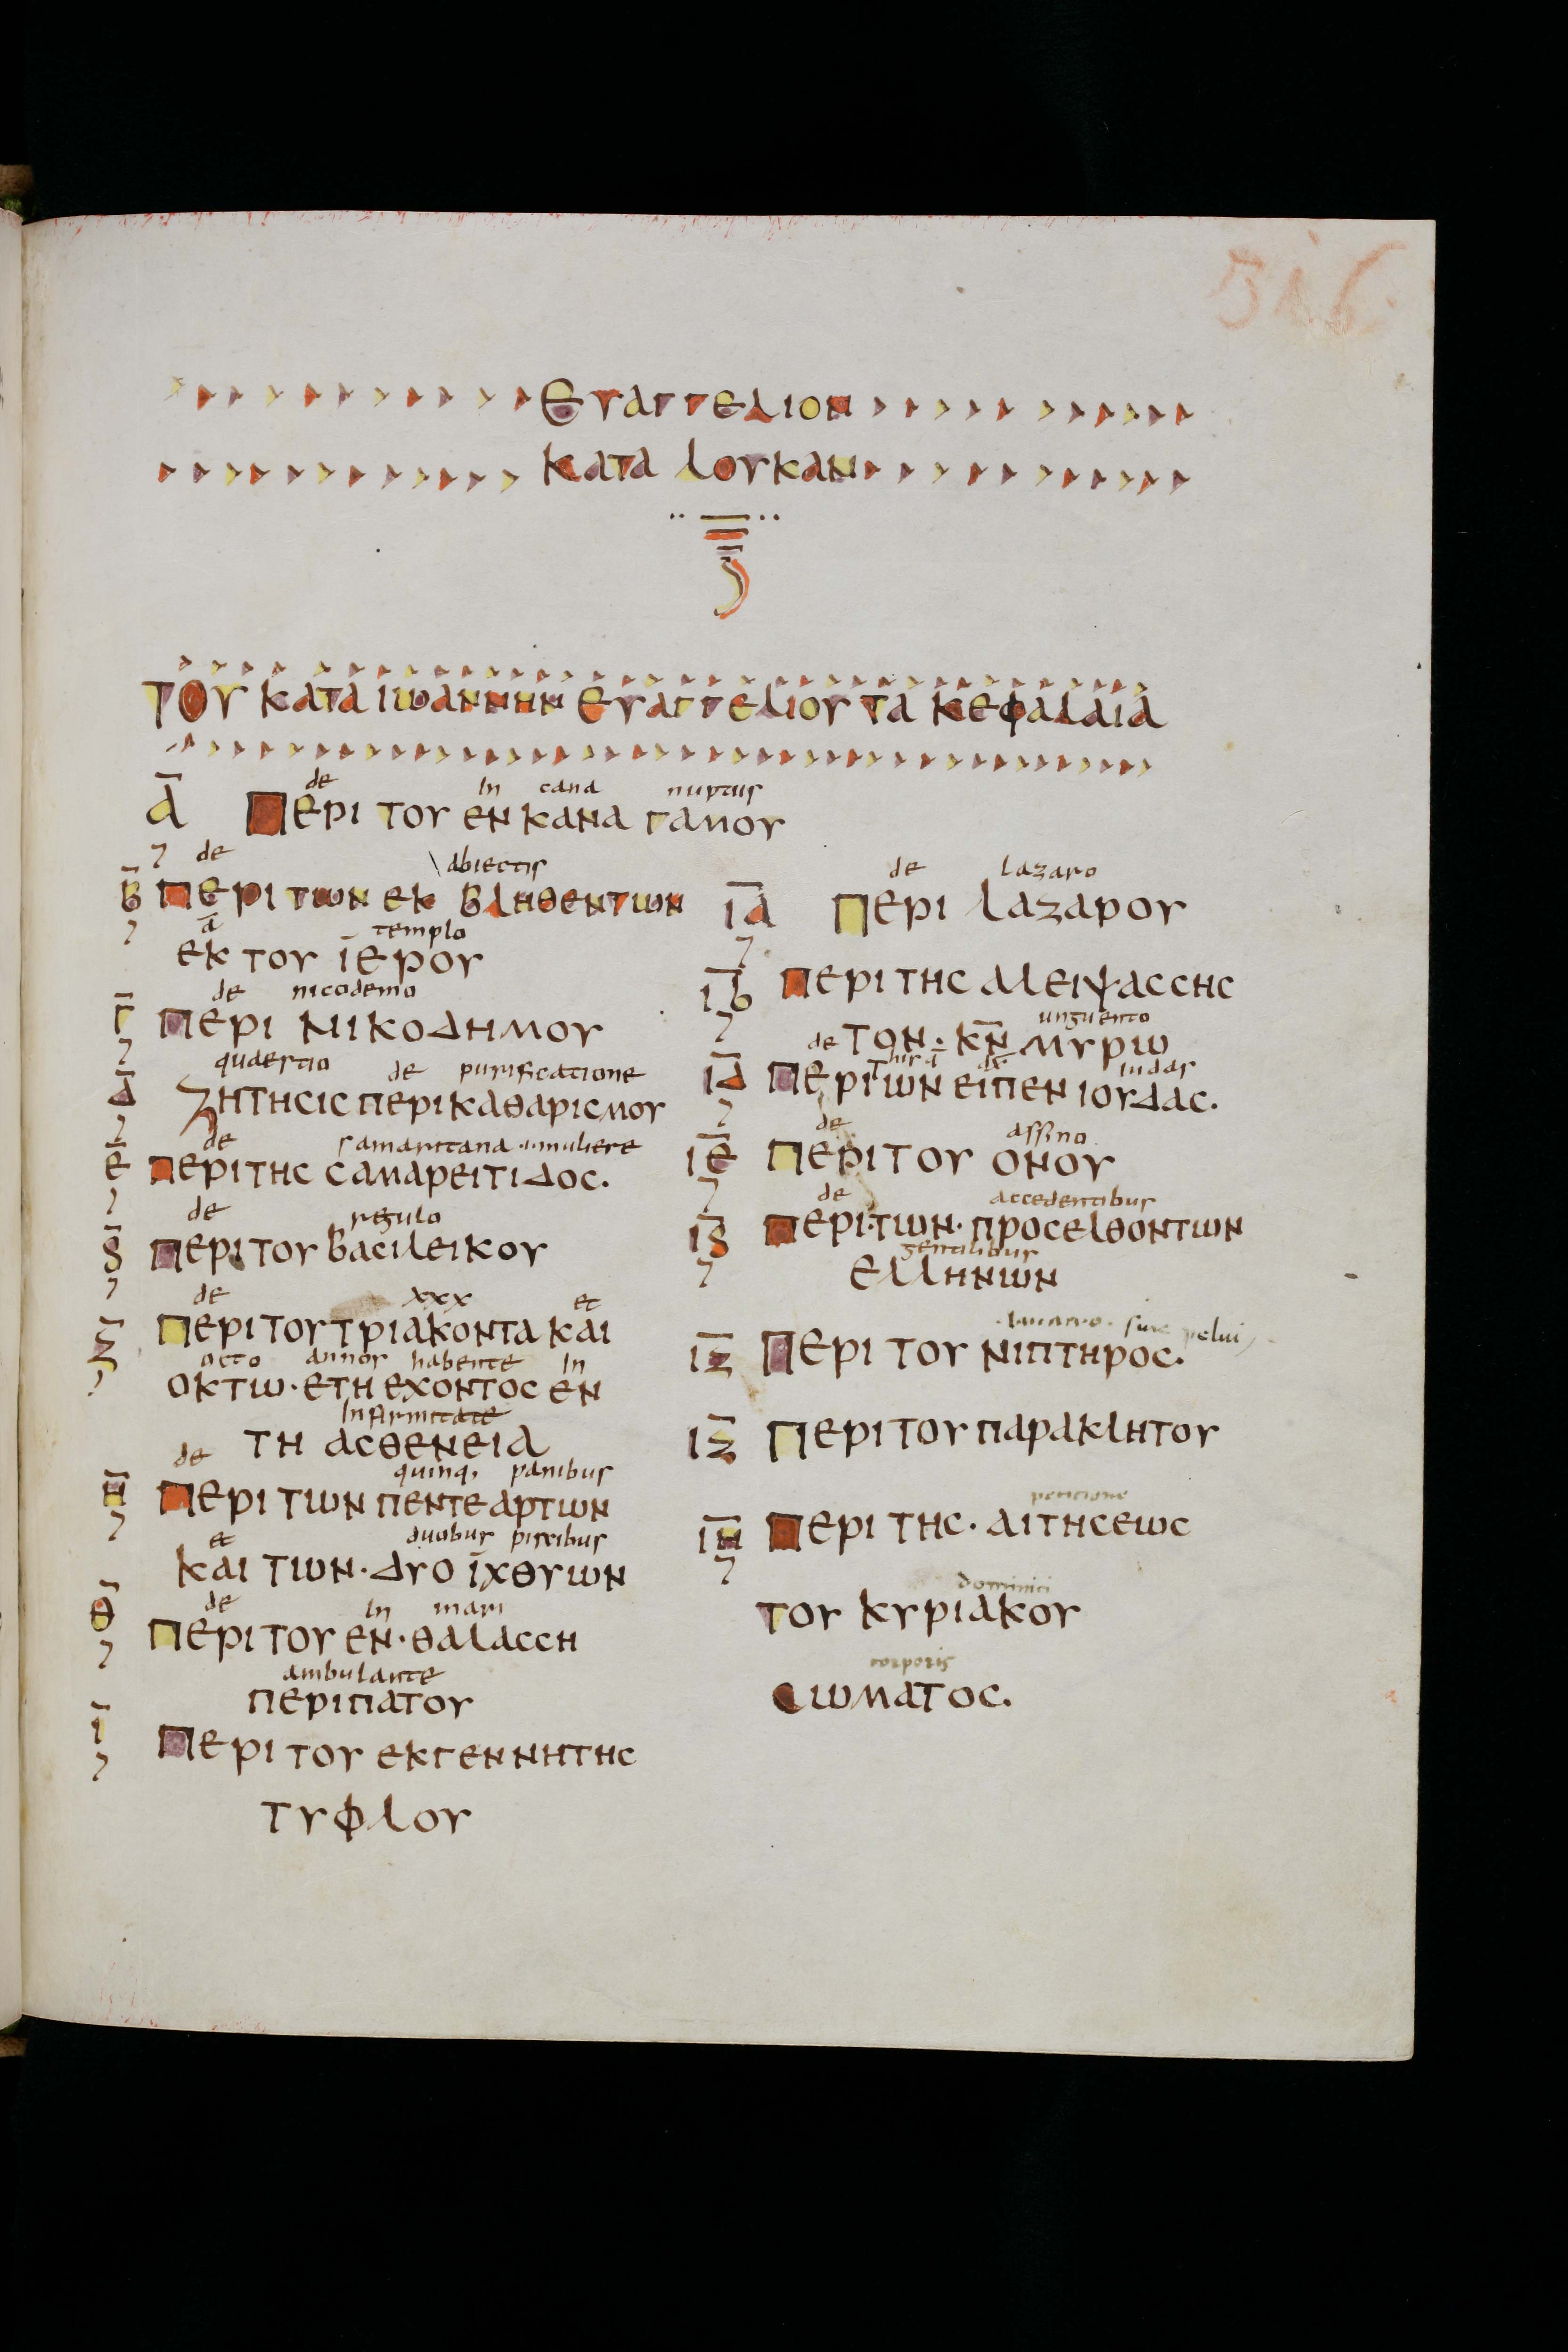 316
ΕΥΑΓΓΕΛΙΟΝ
ΚΑΤΑ ΛΟΥΚΑΝ
ΤΟΥ ΚΑΤΑ ΙΩΑΝΝΗΝ ΕΥΑΓΓΕΛΙΟΥ ΤΑ ΚΕΦΑΛΑΙΑ
de in cana nuptus
Α̅ ΠΕΡΙ ΤΟΥ ΕΝ ΚΑΝΑ ΓΑΜΟΥ
de abiectis
Β̅ ΠΕΡΙ ΤΩΝ ΕΚ ΒΛΗΘΕΝΤΩΝ
a templo
ΕΚ ΤΟΥ ΙΕΡΟΥ
de nicodemo
Γ̅ ΠΕΡΙ ΝΙΚΟΔΗΜΟΥ
quaestio de purificatione
Δ̅ ΖΗΤΗCΙC ΠΕΡΙ ΚΑΘΑΡΙCΜΟΥ
de samaritana muliere
Ε̅ ΠΕΡΙ ΤΗC CΑΜΑΡΕΙΤΙΔΟC.
de regulo
Ϛ̅ ΠΕΡΙ ΤΟΥ ΒΑCΙΛΕΙΚΟΥ
de xxx et
Ζ̅ ΠΕΡΙ ΤΟΥ ΤΡΙΑΚΟΝΤΑ ΚΑΙ
octo annos habente in
ΟΚΤΩ·ΕΤΗ ΕΧΟΝΤΟC ΕΝ
infirmitate
ΤΗ ΑCΘΕΝΕΙΑ
de quinq; panibus
Η̅ ΠΕΡΙ ΤΩΝ ΠΕΝΤΕ ΑΡΤΩΝ
et duobus piscibus
ΚΑΙ ΤΩΝ·ΔΥΟ ΙΧΘΥΩΝ
de in mari
Θ̅ ΠΕΡΙ ΤΟΥ ΕΝ·ΘΑΛΑCCΗ
ambulante
ΠΕΡΙΠΑΤΟΥ
Ι̅ ΠΕΡΙ ΤΟΥ ΕΚΓΕΝΝΗΤΗC
ΤΥΦΛΟΥ
de lazaro
ΙΑ̅ ΠΕΡΙ ΛΑΖΑΡΟΥ
ΙΒ̅ ΠΕΡΙ ΤΗC ΑΛΕΙΨΑCCΗC
unguento
de ΤΟΝ·ΚΝ̅ ΜΥΡΩ
iudas
ΙΔ̅ ΠΕΡΙ ΩΝ ΕΙΠΕΝ ΙΟΥΔΑC.
de assino
ΙΕ̅ ΠΕΡΙ ΤΟΥ ΟΝΟΥ
de accedentibus
ΙϚ̅ ΠΕΡΙ·ΤΩΝ·ΠΡΟCΕΛΘΟΝΤΩΝ
gentilibus
ΕΛΛΗΝΩΝ
pelui
ΙΖ̅ ΠΕΡΙ ΤΟΥ ΝΙΠΤΗΡΟC.
ΙΖ̅ ΠΕΡΙ ΤΟΥ ΠΑΡΑΚΛΗΤΟΥ
peticione
ΙΗ̅ ΠΕΡΙ ΤΗC·ΑΙΤΗCΕΩC
dominici
ΤΟΥ ΚΥΡΙΑΚΟΥ
corporis
CΩΜΑΤΟC.